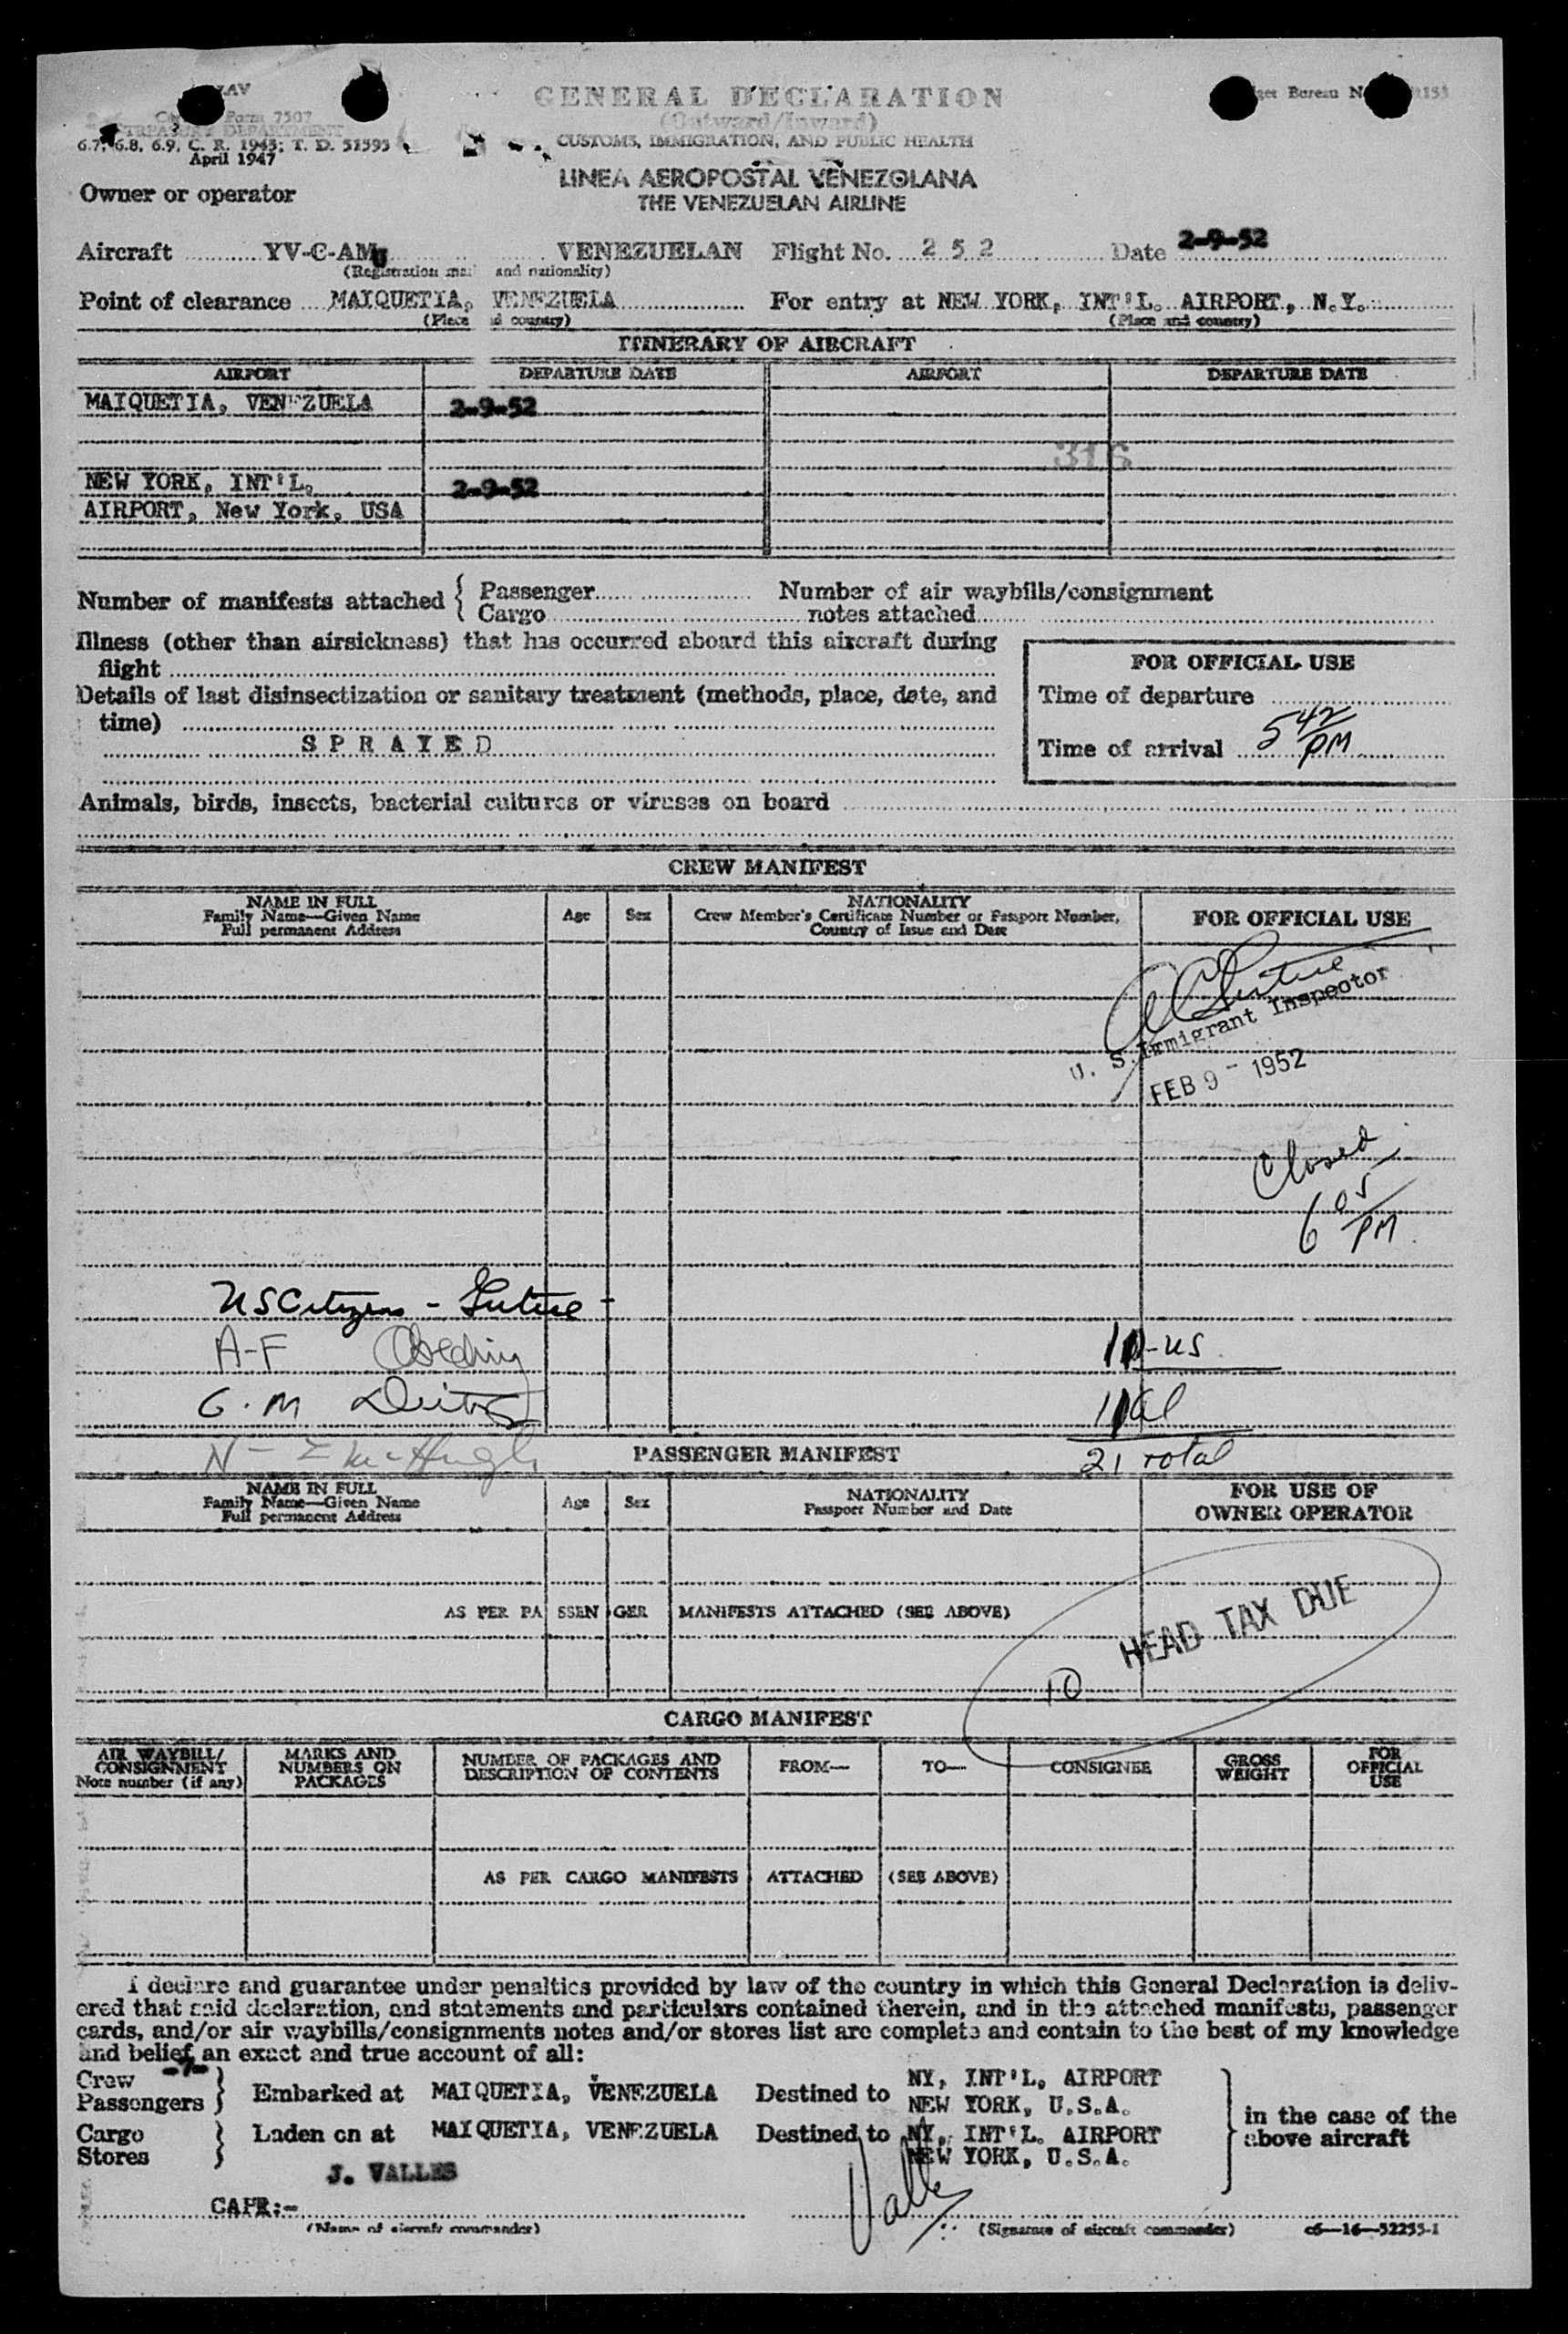 LAV
Form 7507
TREASURY DEPARTMENT
6.7, 6.8, 6.9, C. R. 1943; T. D. 51593
April 1947
GENERAL DECLARATION
(Outward/Inward)
CUSTOMS, IMMIGRATION, AND PUBLIC HEALTH
Bureau
LINEA AEROPOSTAL VENEZOLANA
THE VENEZUELAN AIRLINE
Owner or operator
Aircraft YV-C-AMU VENEZUELAN Flight No. 252 Date 2-9-52
(Registration and nationality)
Point of clearance MAIQUETIA, VENEZUELA For entry at NEW YORK, INT'L. AIRPORT, N.Y.
(Place and country) (Place and country)
ITINERARY OF AIRCRAFT
AIRPORT DEPARTURE DATE AIRPORT DEPARTURE DATE
MAIQUETIA, VENEZUELA 2-9-52
316
NEW YORK, INT'L. 2-9-52
AIRPORT, New York, USA
Number of manifests attached { Passenger Number of air waybills/consignment
Cargo notes attached
Illness (other than airsickness) that has occurred aboard this aircraft during
flight
Details of last disinsectization or sanitary treatment (methods, place, date, and
time)
SPRAYED
FOR OFFICIAL USE
Time of departure
Time of arrival 5 42 PM
Animals, birds, insects, bacterial cultures or viruses on board
CREW MANIFEST
NAME IN FULL
Family Name—Given Name
Full permanent Address
Age Sex
NATIONALITY
Crew Member's Certificate Number or Passport Number,
Country of Issue and Date
FOR OFFICIAL USE
U. S. Immigrant Inspector
FEB 9 - 1952
Closed
6 05 PM
US Citizens -
A-F
G-M
N - McHugh
-US
al
21 Total
PASSENGER MANIFEST
NAME IN FULL
Family Name—Given Name
Full permanent Address
Age Sex
NATIONALITY
Passport Number and Date
FOR USE OF
OWNER OPERATOR
AS PER PASSENGER MANIFESTS ATTACHED (SEE ABOVE)
HEAD TAX DUE
10
CARGO MANIFEST
AIR WAYBILL/
CONSIGNMENT
Note number (if any)
MARKS AND
NUMBERS ON
PACKAGES
NUMBER OF PACKAGES AND
DESCRIPTION OF CONTENTS
FROM—
TO—
CONSIGNEE
GROSS
WEIGHT
FOR
OFFICIAL
USE
AS PER CARGO MANIFESTS ATTACHED (SEE ABOVE)
I declare and guarantee under penalties provided by law of the country in which this General Declaration is deliv-
ered that said declaration, and statements and particulars contained therein, and in the attached manifests, passenger
cards, and/or air waybills/consignments notes and/or stores list are complete and contain to the best of my knowledge
and belief, an exact and true account of all:
Crew -7-
Passengers } Embarked at MAIQUETIA, VENEZUELA Destined to NY, INT'L. AIRPORT
NEW YORK, U.S.A.
Cargo
Stores } Laden on at MAIQUETIA, VENEZUELA Destined to NY, INT'L. AIRPORT
NEW YORK, U.S.A.
} in the case of the
above aircraft
J. VALLES
CAPR:-
Valles
(Name of aircraft commander) (Signature of aircraft commander) c6—16—52255-1